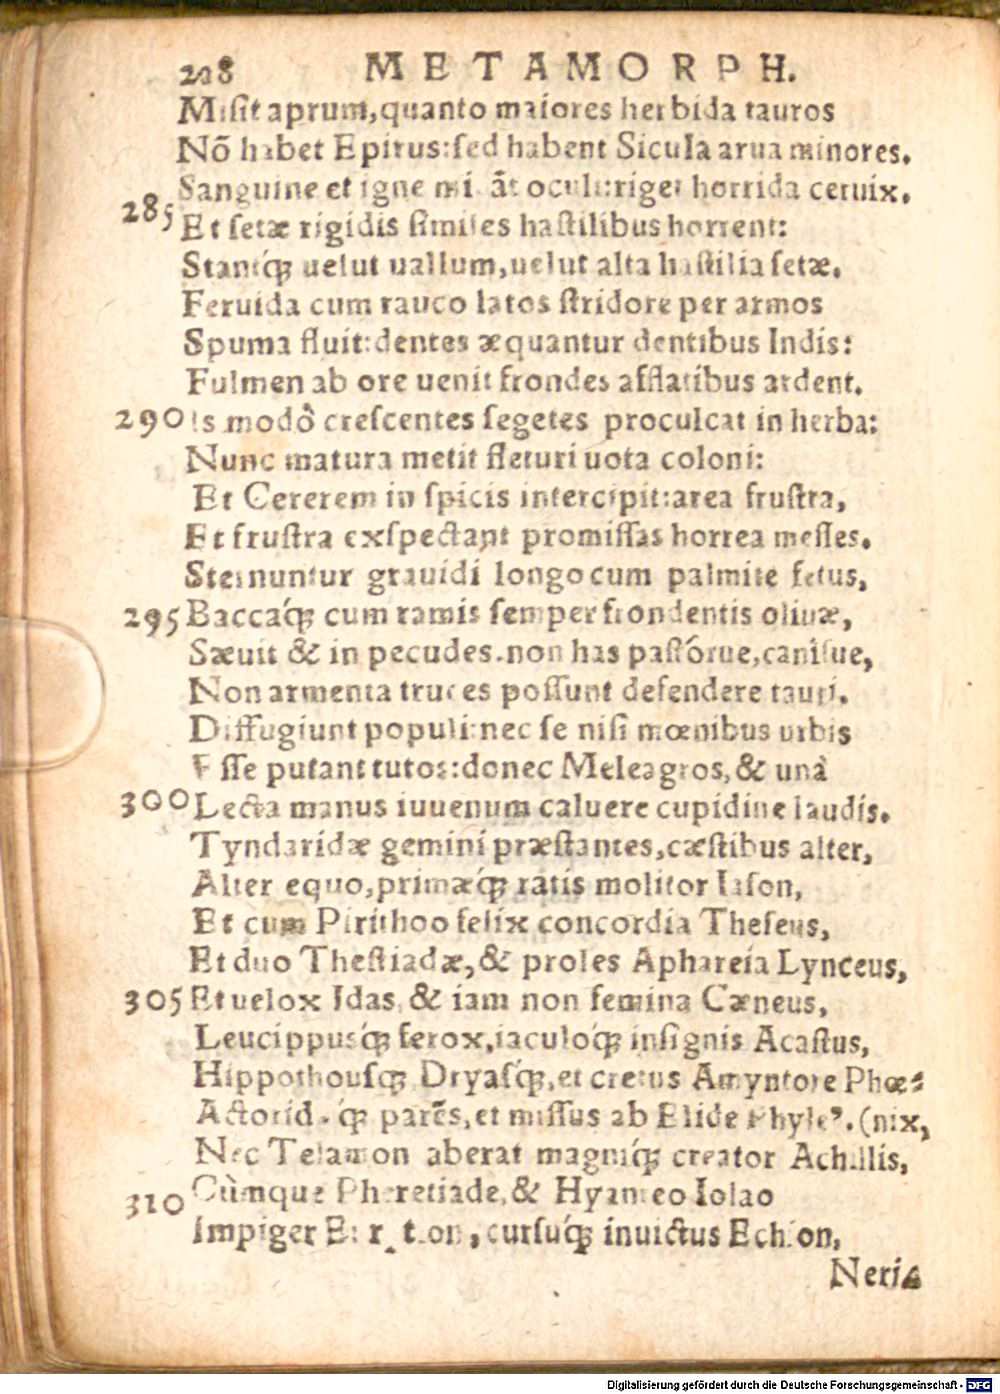 228 METAMORPH.
Misit aprum,quanto maiores herbida tauros
Nõ habet Epirus:sed habent Sicula arua minores.
Sanguine et igne mi ãt oculi:riget horrida ceruix.
285 Et setæ rigidis similes hastilibus horrent:
Stantq́; uelut uallum,uelut alta hastilia setæ.
Feruida cum rauco latos stridore per armos
Spuma fluit:dentes æquantur dentibus Indis:
Fulmen ab ore uenit frondes afflatibus ardent.
290 Is modò crescentes segetes proculcat in herba:
Nunc matura metit fleturi uota coloni:
Et Cererem in spicis intercipit:area frustra,
Et frustra exspectant promissas horrea messes.
Sternuntur grauidi longo cum palmite fetus,
295 Baccaq́; cum ramis semper frondentis oliuæ,
Sæuit & in pecudes.non has pastórue,canisue,
Non armenta truces possunt defendere tauri.
Diffugiunt populi:nec se nisi mœnibus urbis
Esse putant tutos:donec Meleagros,& unà
300 Lecta manus iuuenum caluere cupidine laudis.
Tyndaridæ gemini præstantes,cæstibus alter,
Alter equo,primæq́; ratis molitor Iason,
Et cum Pirithoo felix concordia Theseus,
Et duo Thestiadæ,& proles Aphareia Lynceus,
305 Et uelox Idas, & iam non femina Cæneus,
Leucippusq́; ferox,iaculoq́; insignis Acastus,
Hippothousq; Dryasq́;,et cretus Amyntore Phœ-
Actorid q́; parẽs,et missus ab Elide Phyle⁹.(nix,
Nec Telamon aberat magniq́; creator Achillis,
310 Cùmque Pheretiade,& Hyanteo Iolao
Impiger Eurytion,cursuq́; inuictus Echion,
Neri-
Digitalisierung gefördert durch die Deutsche Forschungsgemeinschaft - DFG